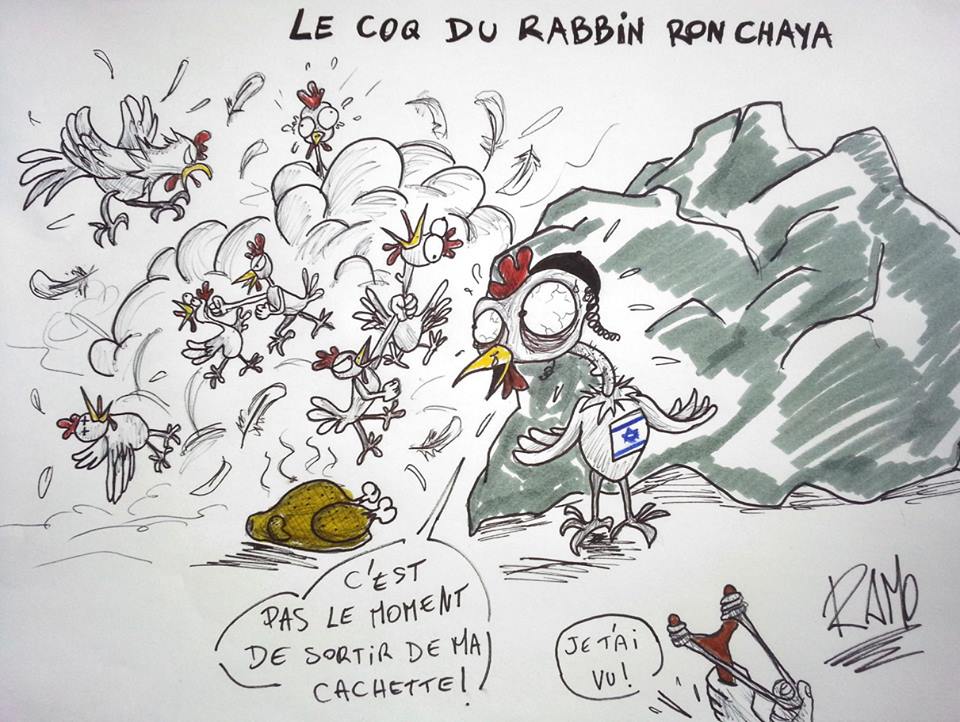 LE COQ DU RABBIN RON CHAYA
C'EST
PAS LE MOMENT
DE SORTIR DE MA
CACHETTE!
JE T'AI
VU!
RAMO